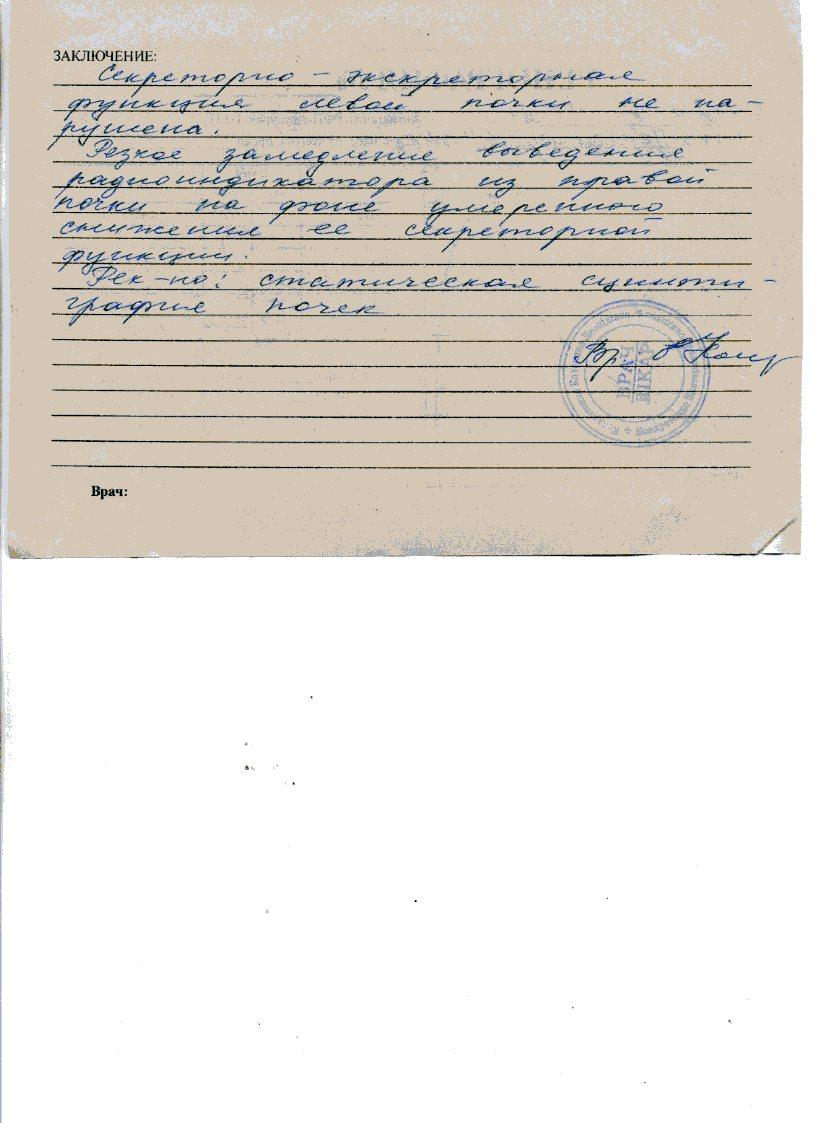 ЗАКЛЮЧЕНИЕ:
Секреторно - экскреторная
функция левой почки не на-
рушена.
Резкое замедление выведения
радиоиндикатора из правой
почки на фоне умеренного
снижения ее секреторной
функции.
Рек-но: статическая сцинти-
графия почек
Вр.
ВРАЧ
Врач: